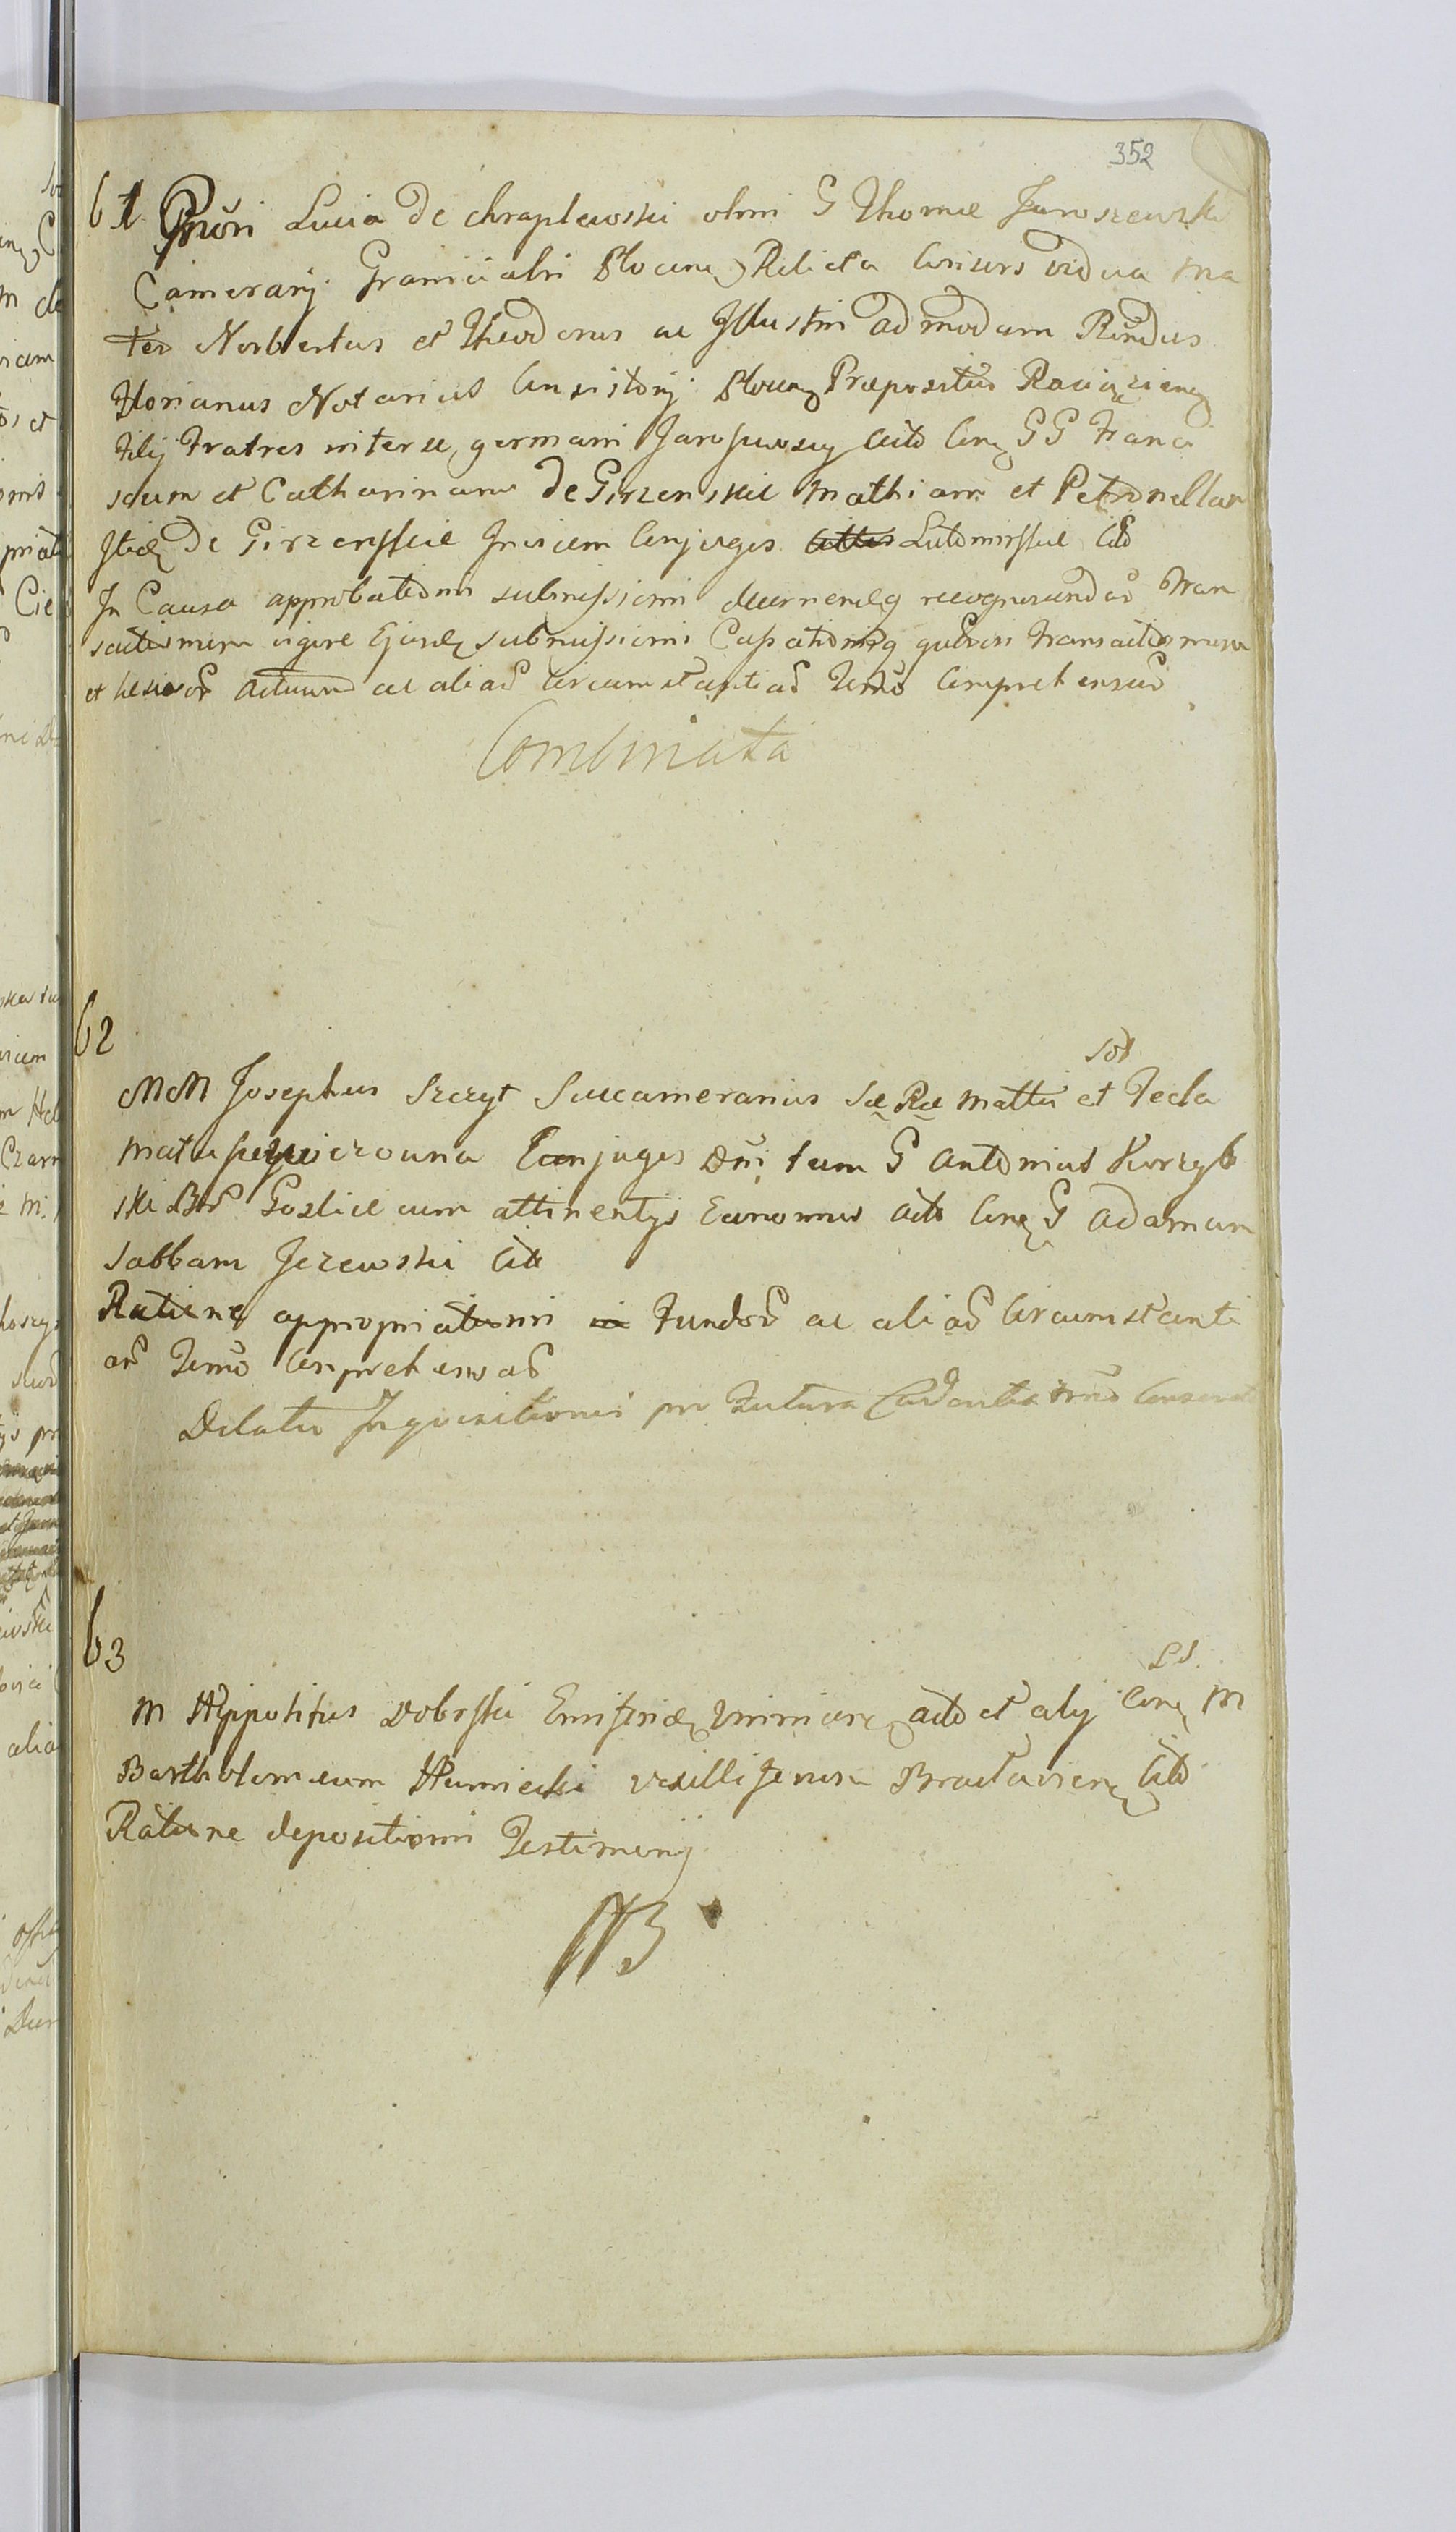 352
61 Gnrosi Lucia de Chraplewski olim G Thomae Jaroszewski
Camerarij Granicialis Plocens Relicta Consors vidua Ma
ter Norbertus et Theodorus ac Illustris admodum Rendus
Florianus Notarius Consistorij Plocens Praepositus Raciąziens
Filij Fratres inter se germani Jaroszewscy Acto Cone GG Franci
scum et Catharinam De Girzenskie Mathiam et Petronellam
Itide De Girzenskie Invicem Conjuges Lutomirskie Cito
In Causa approbationis submissionis decernendaeq recognoscendar Tran
sactionem vigore Ejusde submissionis Cassationisq quarvis Transactionum
et Actuum ac aliar Circumstantiar Termo Comprehensar
Combinata
62
Sol
MM Josephus Szczyt Succamerarius Sae Rae Mattis et Tecla
Matuszewiczowna Conjuges Dni tum G Antonius Korzyb
ski Bor Goslice cum attinentijs Economus Acto Cone G Adamum
Sabbam Jezewski Cito
Ratione appropriationis Fundor ac aliar Circumstanti
ar Termo Comprehensar
Dilatio Inquisitionis pro Futura Cadentia
63
LS.
M Hippolitus Dobrski acto et alij Cone M
Bartholomeum Humiecki Vexilliferum Braclaviens Cito
Ratione depositionis Testimonij